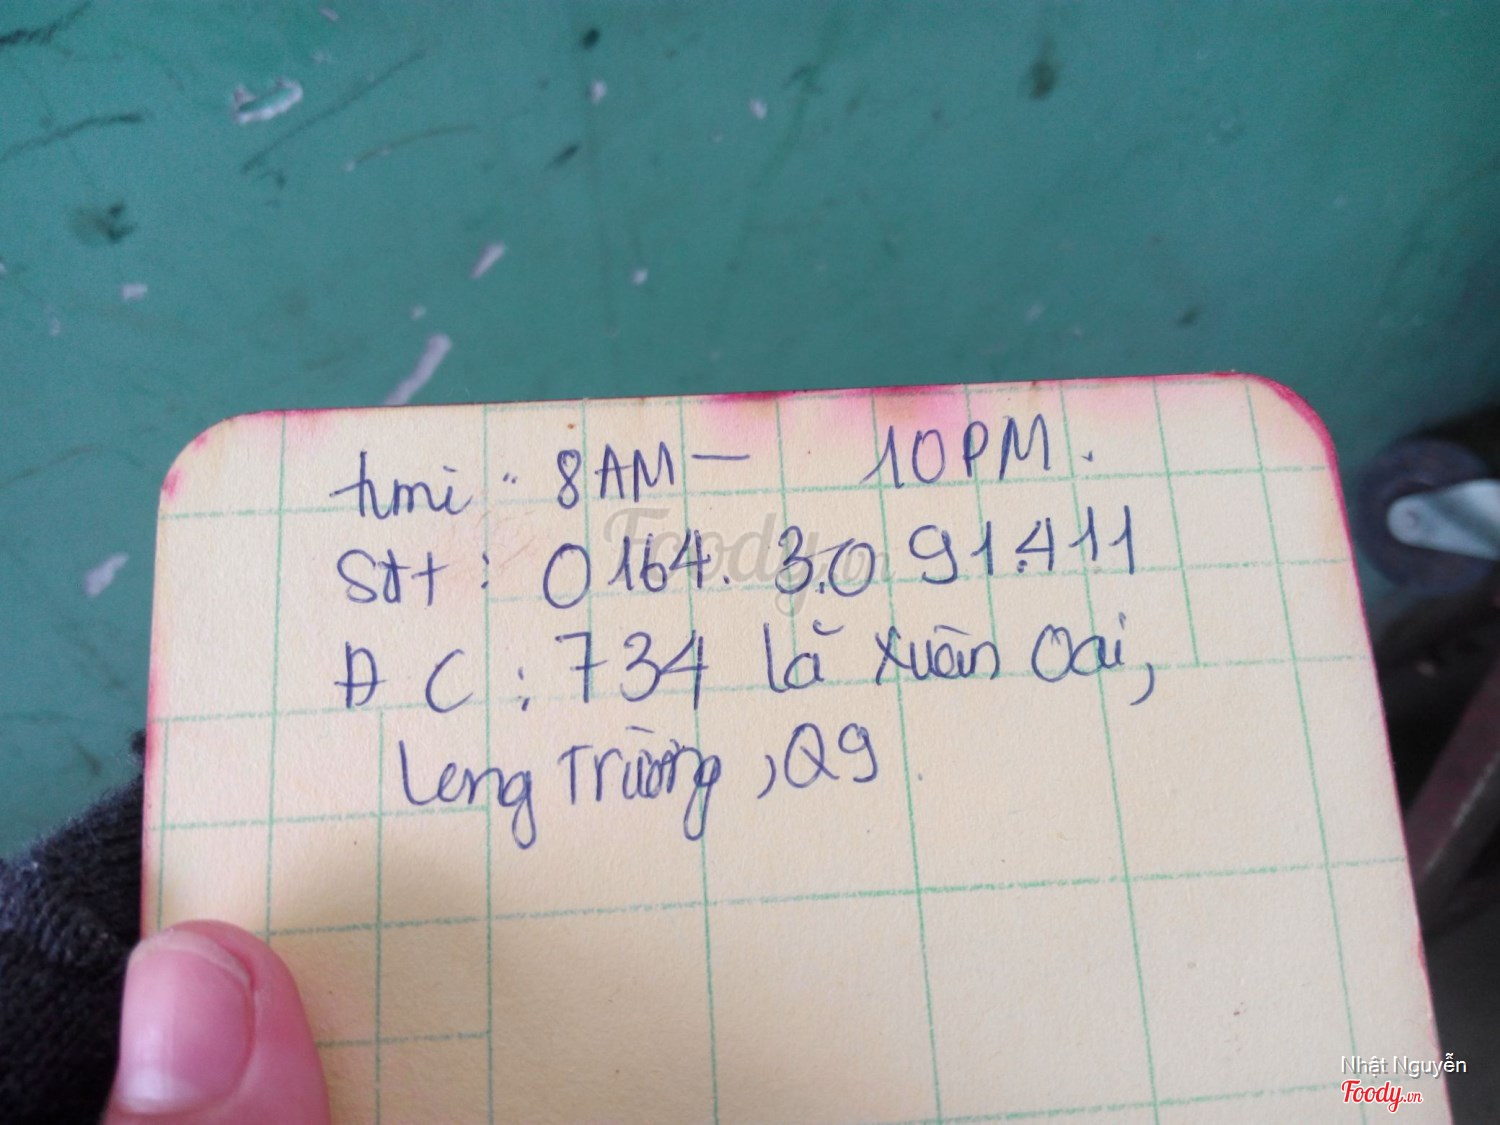 time : 8AM - 10PM.
Sđt : 0164. 3.0 91.411
ĐC : 734 Lã Xuân Oai,
Long Trường, Q9.
Foody.vn
Nhật Nguyễn
Foody.vn